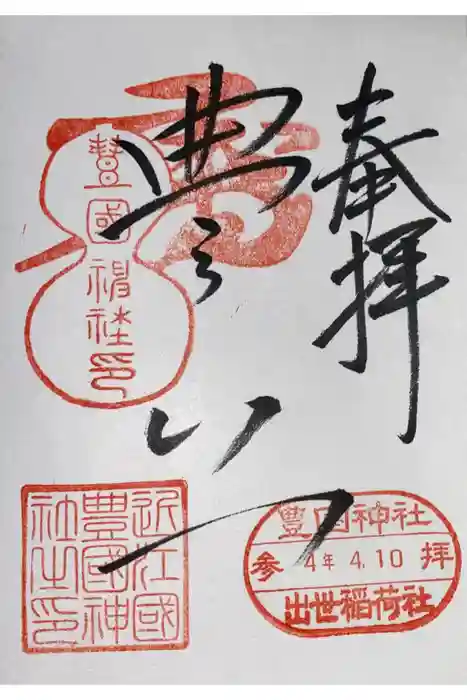 奉拝
豐國神社印
近江國
豊國神
社之印
豊国神社
参 4年 4.10 拝
出世稲荷社